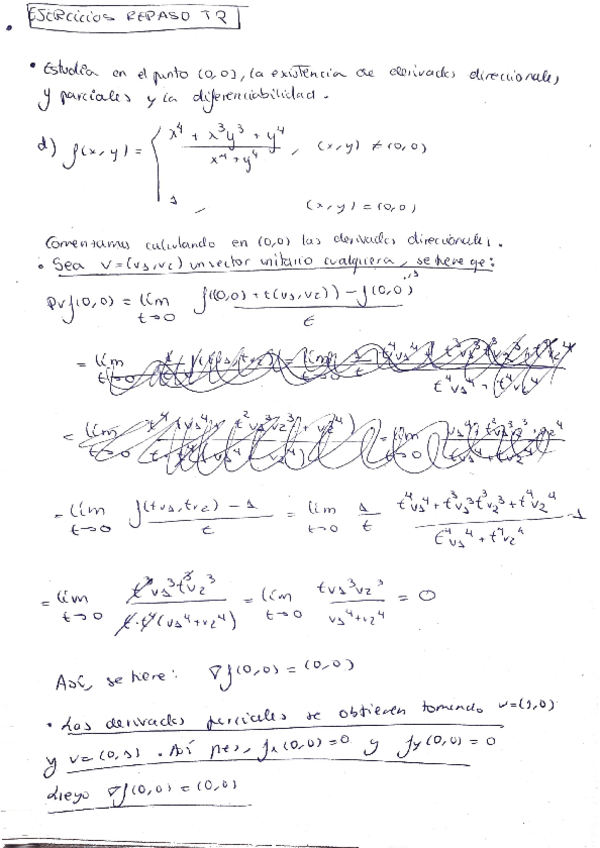 EJERCICIOS REPASO T2
• Estudia en el punto (0,0), la existencia de derivadas direccionales
y parciales y la diferenciabilidad.
d) f(x,y) = { x⁴ + x³y³ + y⁴ / x⁴ + y⁴ , (x,y) ≠ (0,0)
1 , (x,y) = (0,0)
Comenzamos calculando en (0,0) las derivadas direccionales.
• Sea v=(v1,v2) un vector unitario cualquiera, se tiene qe:
Dvf(0,0) = lím t→0 f((0,0)+t(v1,v2)) - f(0,0) / t
= lím t→0 f(tv1,tv2) - 1 / t = lím t→0 1/t t⁴v1⁴+t³v1³t³v2³+t⁴v2⁴ / t⁴v1⁴+t⁴v2⁴ - 1
= lím t→0 t³v1³t³v2³ / t·t⁴(v1⁴+v2⁴) = lím t→0 tv1³v2³ / v1⁴+v2⁴ = 0
Así, se tiene: ∇f(0,0) = (0,0)
• Las derivadas parciales se obtienen tomando v=(1,0)
y v=(0,1). Así pues, fx(0,0)=0 y fy(0,0)=0
Luego ∇f(0,0) = (0,0)